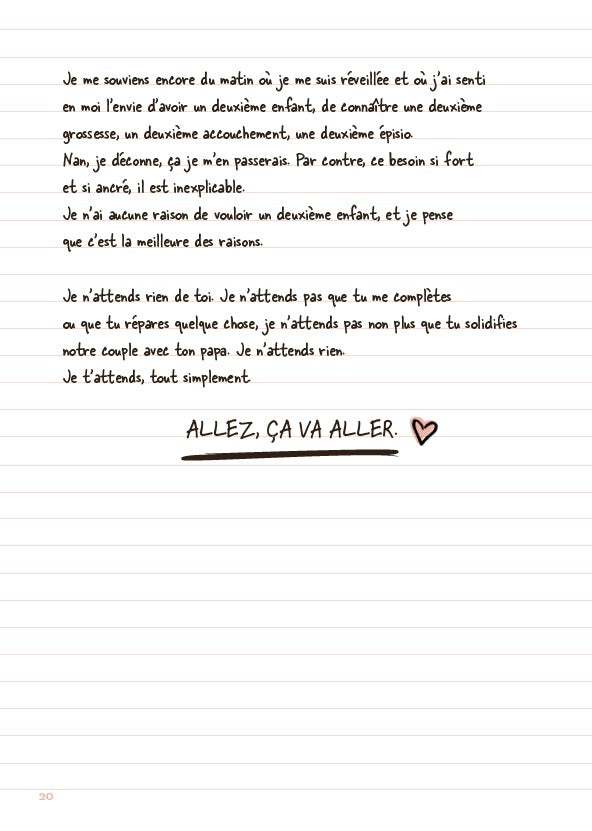 Je me souviens encore du matin où je me suis réveillée et où j'ai senti
en moi l'envie d'avoir un deuxième enfant, de connaître une deuxième
grossesse, un deuxième accouchement, une deuxième épisio.
Nan, je déconne, ça je m'en passerais. Par contre, ce besoin si fort
et si ancré, il est inexplicable.
Je n'ai aucune raison de vouloir un deuxième enfant, et je pense
que c'est la meilleure des raisons.
Je n'attends rien de toi. Je n'attends pas que tu me complètes
ou que tu répares quelque chose, je n'attends pas non plus que tu solidifies
notre couple avec ton papa. Je n'attends rien.
Je t'attends, tout simplement.
ALLEZ, ÇA VA ALLER.
20